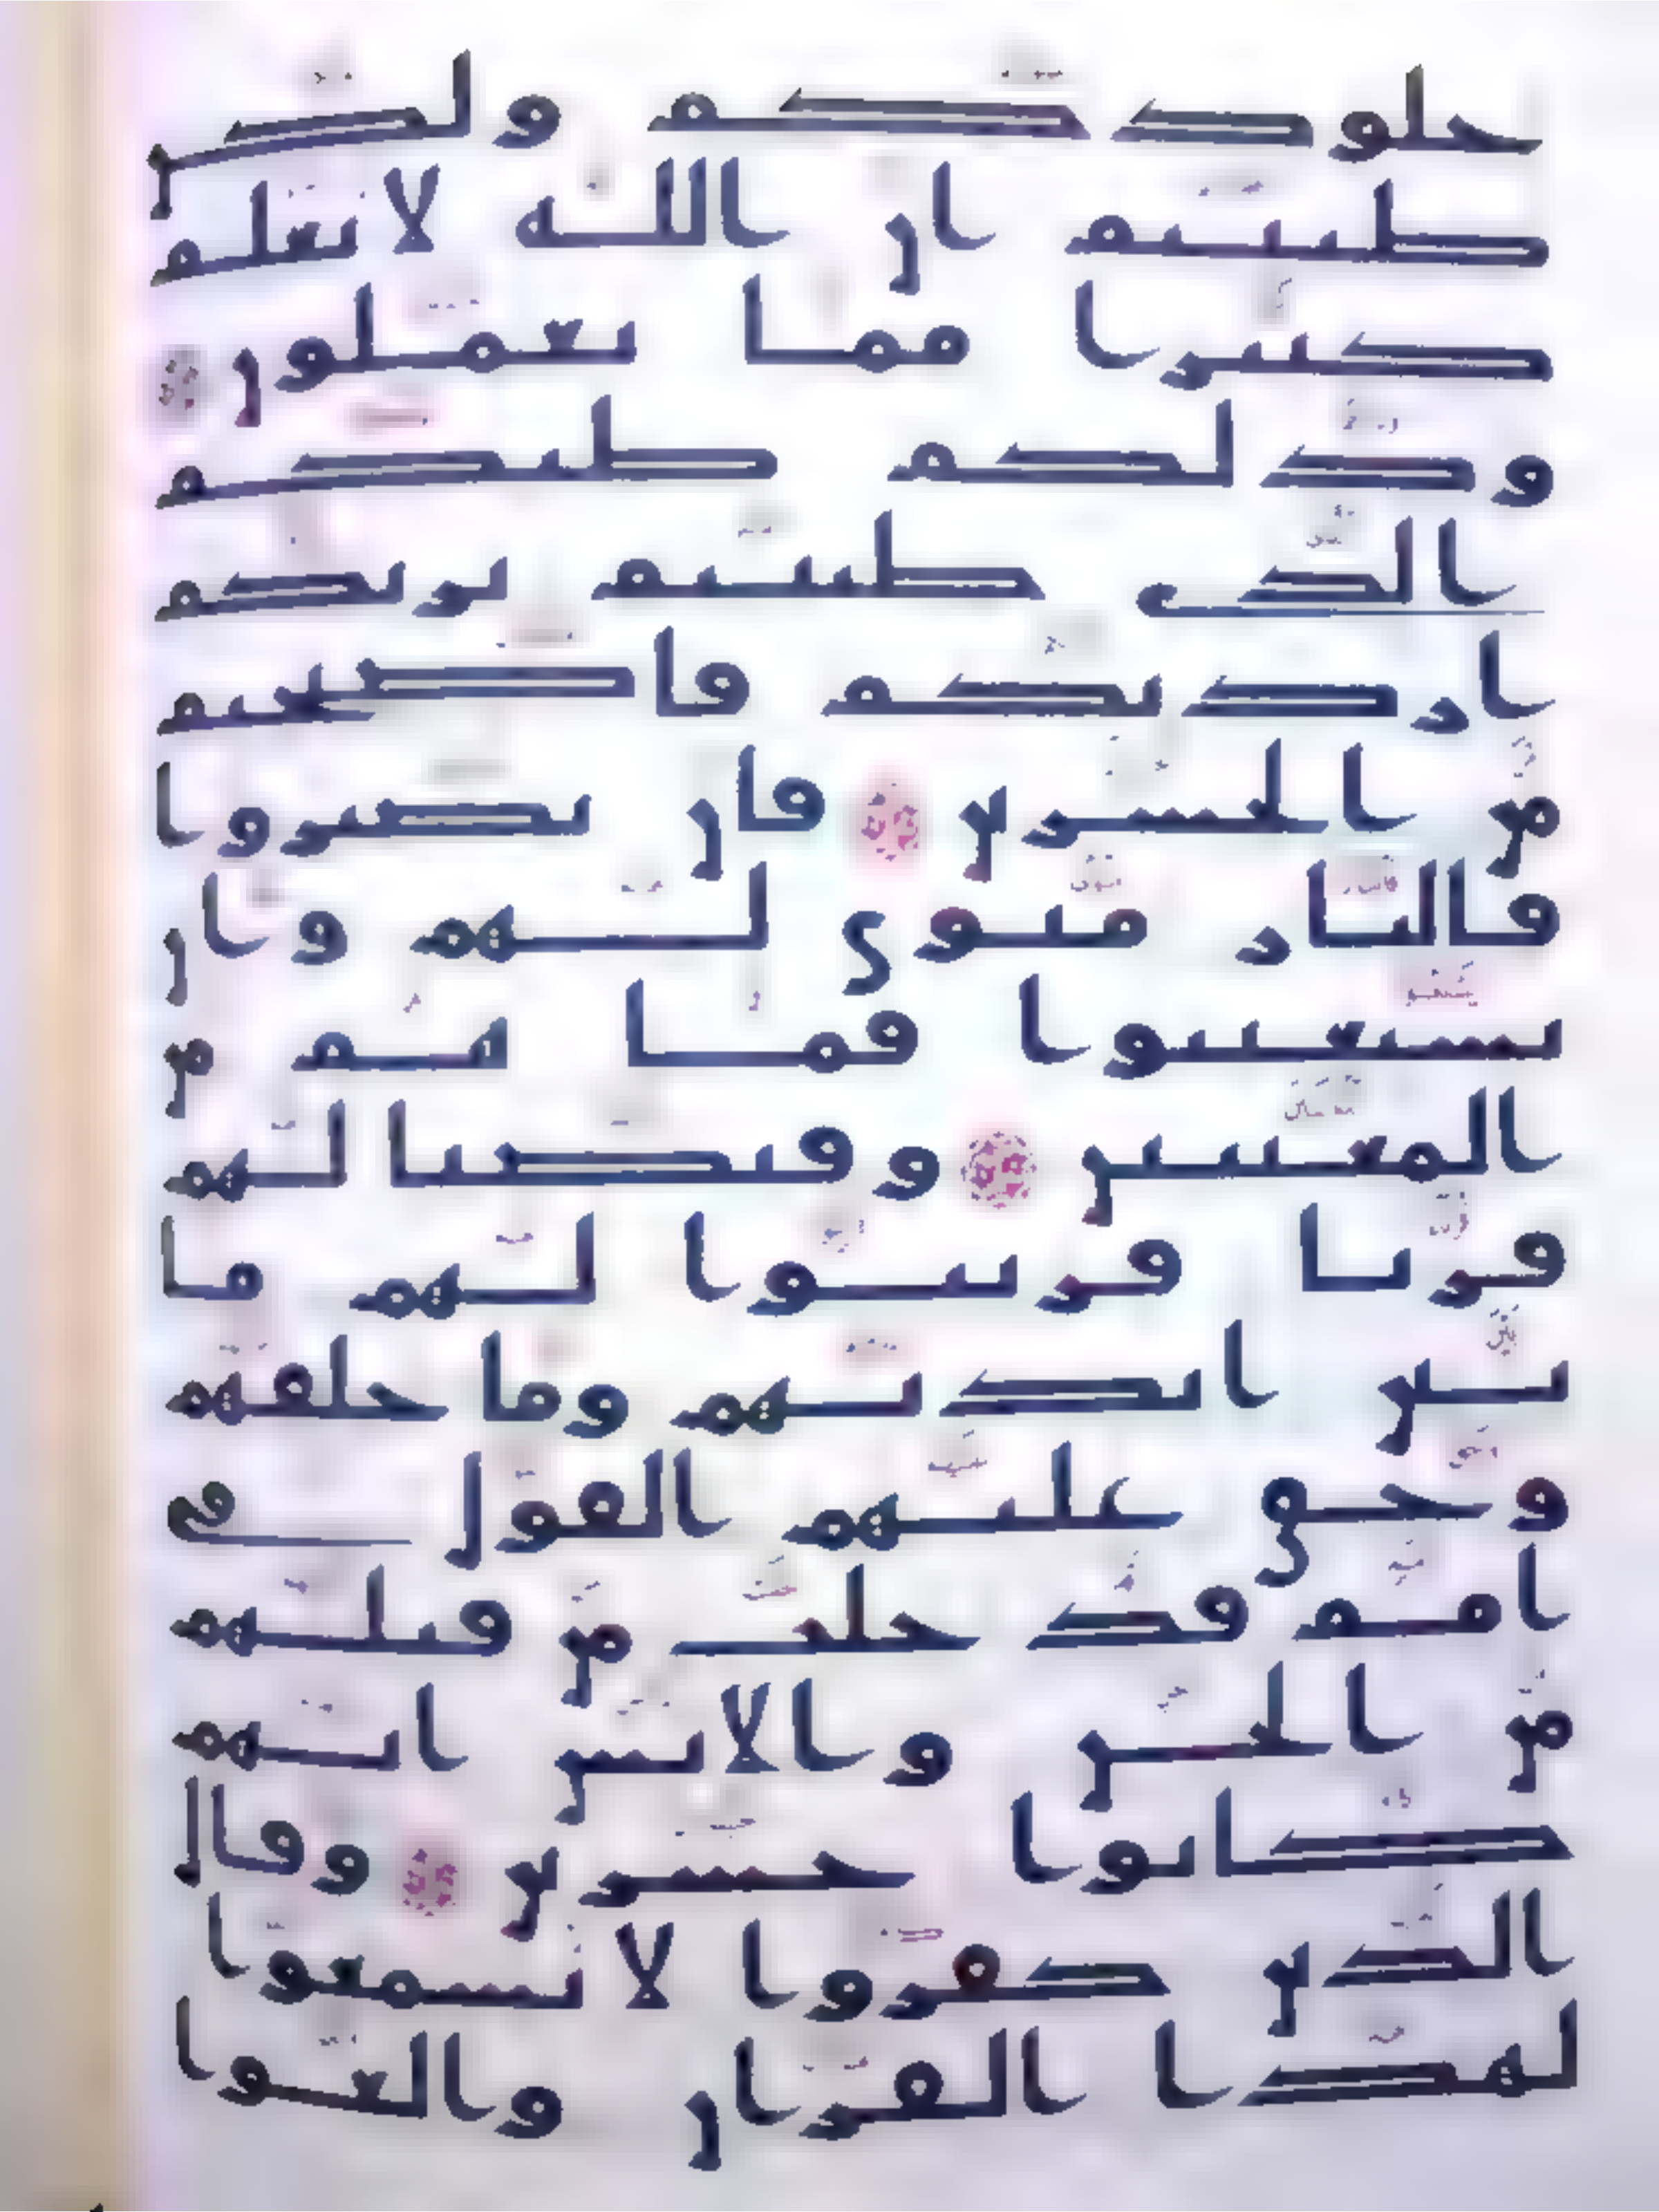 جلودكم ولكن
ظننتم ان الله لا يعلم
كثيرا مما تعملون
وذلكم ظنكم
الذى ظننتم بربكم
ارديكم فاصبحتم
من الخسرين فان يصبروا
فالنار مثوى لهم وان
يستعتبوا فما هم من
المعتبين وقيضنا لهم
قرنا فزينوا لهم ما
بين ايديهم وما خلفهم
وحق عليهم القول في
امم قد خلت من قبلهم
من الجن والانس انهم
كانوا خسرين وقال
الذين كفروا لا تسمعوا
لهذا القران والغوا